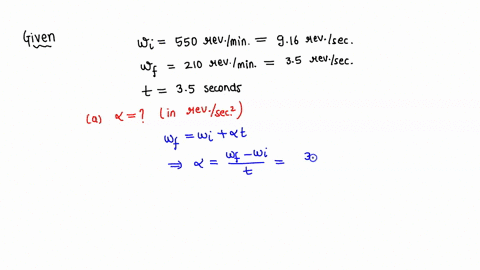 Given
ωi = 550 rev./min. = 9.16 rev/sec.
ωf = 210 rev./min. = 3.5 rev/sec.
t = 3.5 seconds
(a) α = ? (in rev./sec.²)
ωf = ωi + αt
⇒ α = (ωf − ωi)/t = 3.